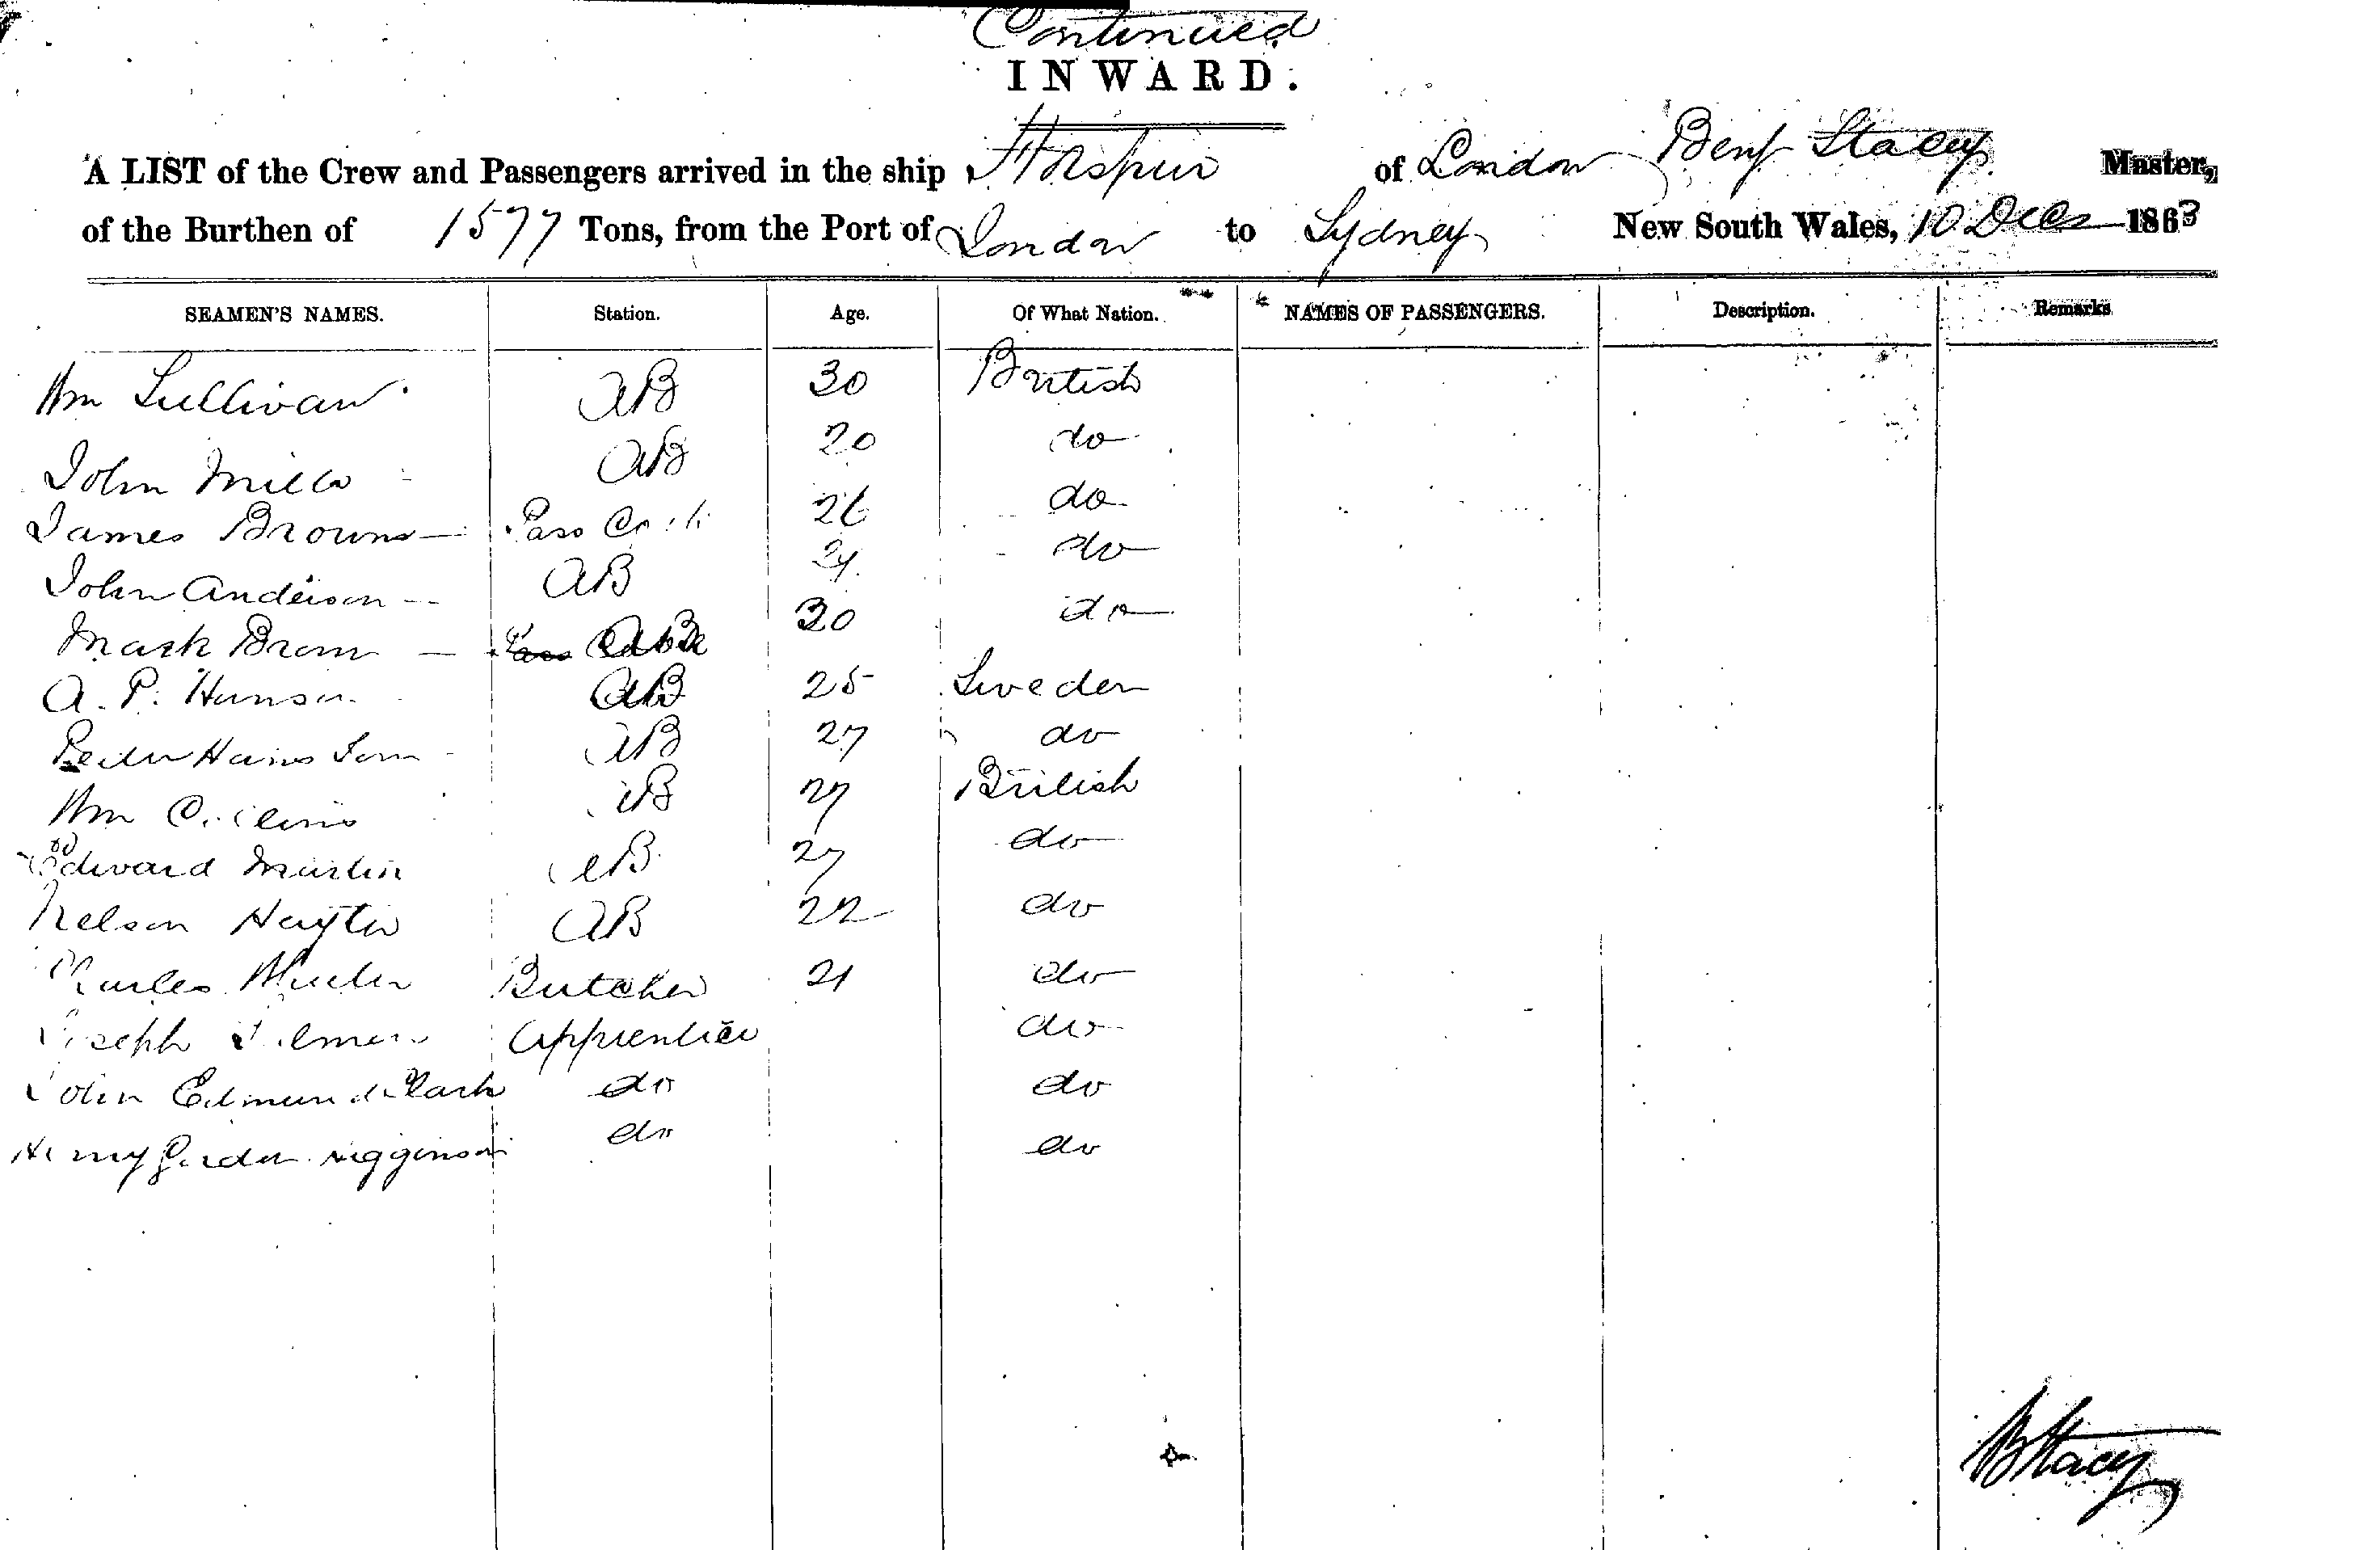 Continued
INWARD.
A LIST of the Crew and Passengers arrived in the ship Hotspur of London Benj Stacey Master,
of the Burthen of 1577 Tons, from the Port of London to Sydney New South Wales, 10 Decr 1863
SEAMEN'S NAMES. Station. Age. Of What Nation. NAMES OF PASSENGERS. Description. Remarks
Wm Sullivan AB 30 British
John Mills AB 20 do
James Brown Pass Cook 26 do
John Anderson AB do
Mark Brown AB 30 do
A. P. Hansen AB 25 Sweden
Peter Hans Son AB 27 do
Wm Collins AB 27 British
Edward Martin AB 27 do
Nelson Hayter AB 22 do
Charles Butcher 21 do
Joseph Apprentice do
John Edmund Clark do do
Henry Gordon Higginson do do
B Stacey